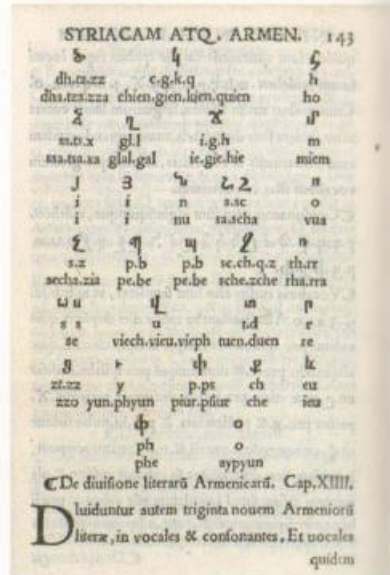 SYRIACAM ATQ. ARMEN. 143
ծ կ հ
dh.tz.zz c.g.k.q h
dha.tza.zza chien.gien.kien.quien ho
ձ ղ ճ մ
ss.ts.x gl.l i.g.h m
ssa.tsa.xa glal.gal ie.gie.hie miem
յ Յ ն շ ո
i i n s.sc o
i i nu sa.scha vua
չ պ պ ջ ռ
s.z p.b p.b sc.ch.q.z rh.rr
secha.zia pe.be pe.be sche.zche rha.rra
ս վ տ ր
s s u t.d r
se viech.vieu.vieph tuen.duen re
ց ւ փ ք և
zt.zz y p.ps ch eu
zzo yun.phyun piur.psiur che ieu
ֆ օ
ph o
phe aypyun
☾De diuisione literarũ Armenicarũ. Cap.XIIII.
Diuiduntur autem triginta nouem Armeniorũ
literæ, in vocales & consonantes, Et uocales
quidem